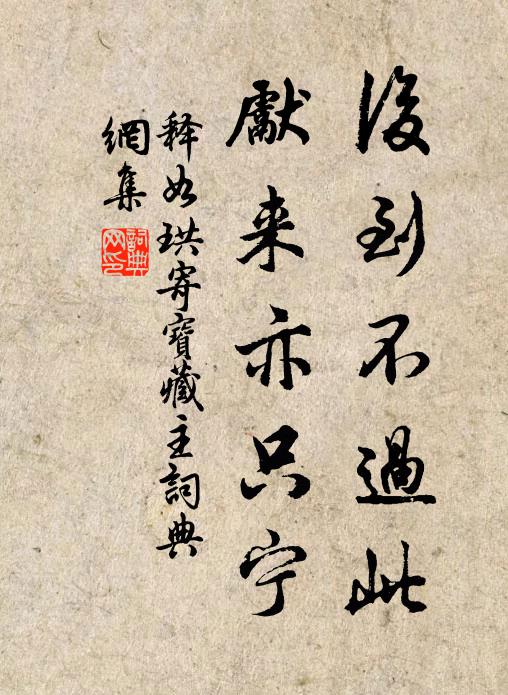 後到不過此
獻来亦只宁
釋如珙寄寶藏主詞典
網集
詞典
网印